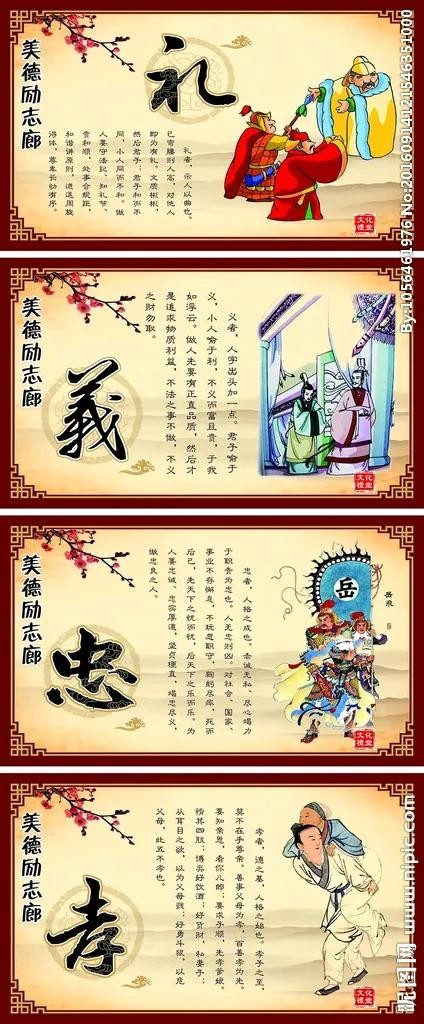 美德励志廊
礼
礼者，示人以曲也。
己弯腰则人高，对他人
即为有礼。文质彬彬，
然后君子。君子和而不
同，小人同而不和。做
人要守法记、知礼节，
贵和顺，处事合规距，
和谐讲原则，进退周旋
得体，尊卑长幼有序。
文化礼堂
美德励志廊
義
义者，人字出头加一点。君子喻于
义，小人喻于利，不义而富且贵，于我
如浮云。做人先要有正直品质，然后才
是追求物质利益，不法之事不做，不义
之财勿取。
文化礼堂
美德励志廊
忠
忠者，人格之成也。赤诚无私、尽心竭力
于职责为忠也。人无忠则凶。对社会、国家、
事业不存懈怠，不玩忽职守，鞠躬尽瘁，死而
后已，先天下之忧而忧，后天下之乐而乐。为
人要忠诚、忠实厚道，坚贞梗直，竭忠尽义，
做忠良之人。
岳
岳飛
文化礼堂
美德励志廊
孝
孝者，德之基，人格之始也。孝子之至，
莫不在乎尊亲。善事父母为孝，百善孝为先。
要知亲恩，看你儿郎；要求子顺，先孝爹娘。
惰其四肢；博奕好饮酒；好货财，私妻子；
从耳目之欲，以为父母戮；好勇斗狠，以危
父母，此五不孝也。
文化礼堂
By:1056461976 No:20160914121546351000
昵图网 www.nipic.com